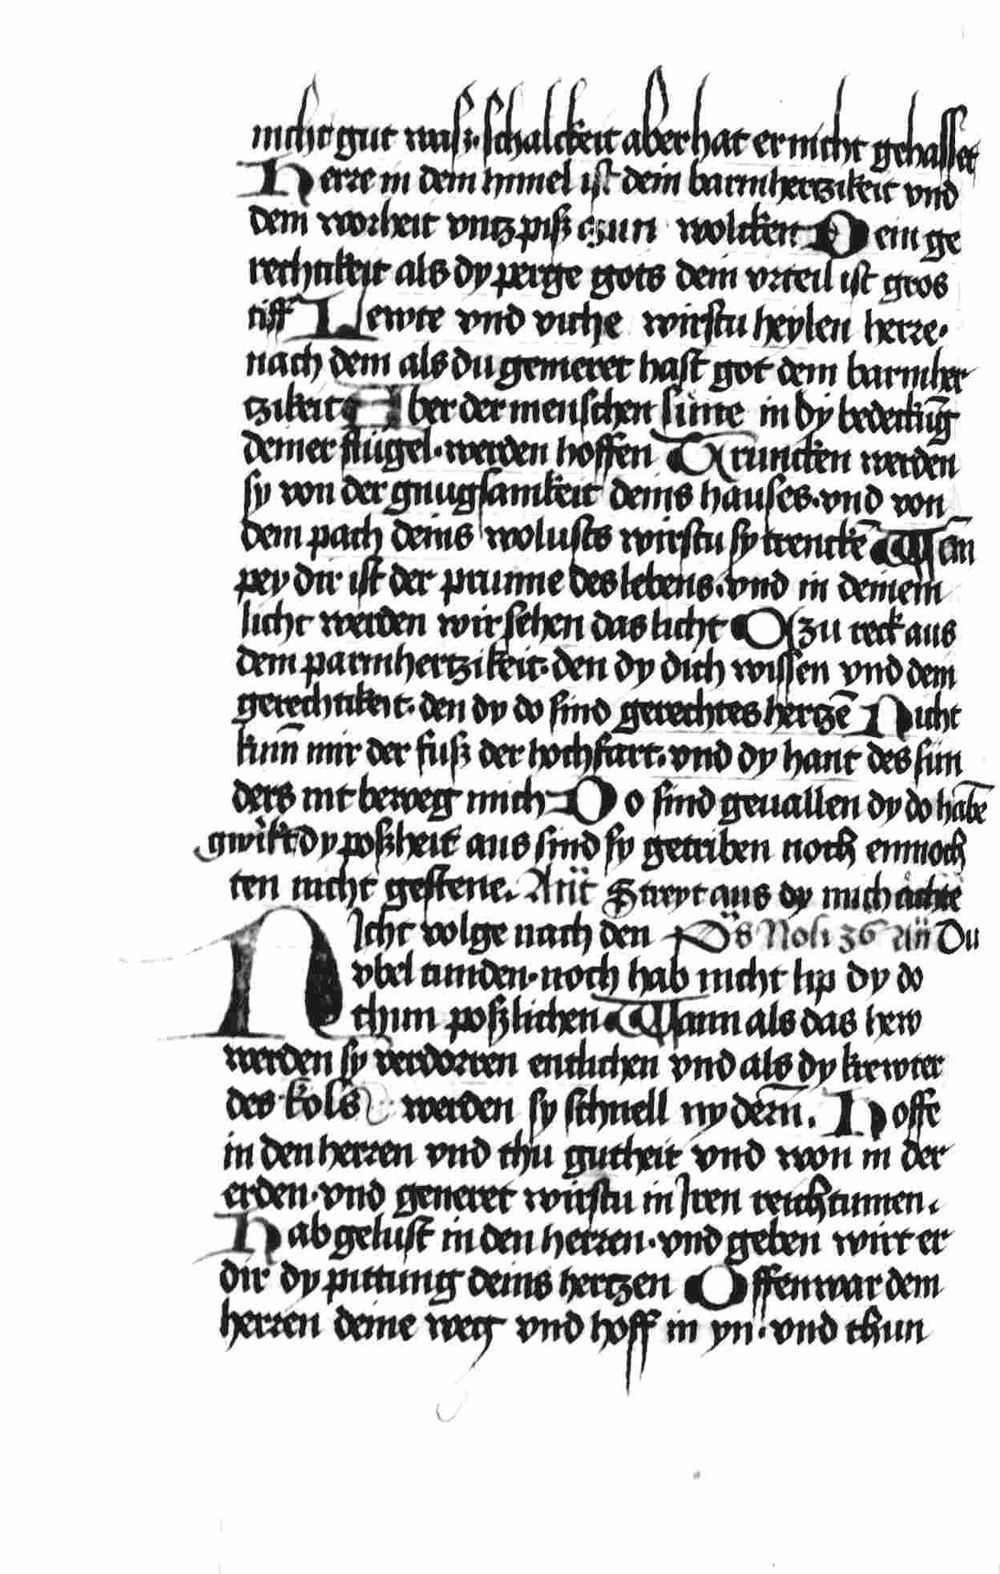 nicht gut was · schalckeit aber hat er nicht gehasset
Herre in dem himel ist dein barmhertzikeit vnd
dein worheit vntz piß czun wolcken Dein ge
rechtikeit als dy perge gots dein vrteil ist gros
tiff Lewte vnd viche wirstu heylen herre ·
nach dem als du gemeret hast got dein barmher
tzikeit Aber der menschen sünte in dy bedeckūg
deiner flügel · werden hoffen Truncken werden
sy von der gnugsamkeit deins hauses · vnd von
dem pach deins wolusts wirstu sy trenckē Wan̄
pey dir ist der prunne des lebens · vnd in deinem
licht werden wir sehen das licht O zu reck aus
dein parmhertzikeit · den dy dich wissen vnd dein
gerechtikeit · den dy do sind gerechtes hertzē Nicht
kum̄ mir der fuß der hochfart · vnd dy hant des sun
ders nit beweg mich Do sind geuallen dy do habē
gwirkt dy poßheit aus sind sy getriben noch enmoch
ten nicht gestene · Streyt aus dy mich ächtē
Nicht volge nach den Ps Noli 36 Du
vbel tunden · noch hab nicht lip dy do
thun poßlichen Wann als das hew
werden sy verdorren entlichen vnd als dy krewter
des kols werden sy schnell nydern̄ . Hoffe
in den herren vnd thu gutheit vnd won in der
erden · vnd generet wirstu in Jren reichtumen ·
Hab gelust in den herren · vnd geben wirt er
dir dy pittung deins hertzen Offenwar dem
herren deine weg vnd hoff in yn · vnd thun